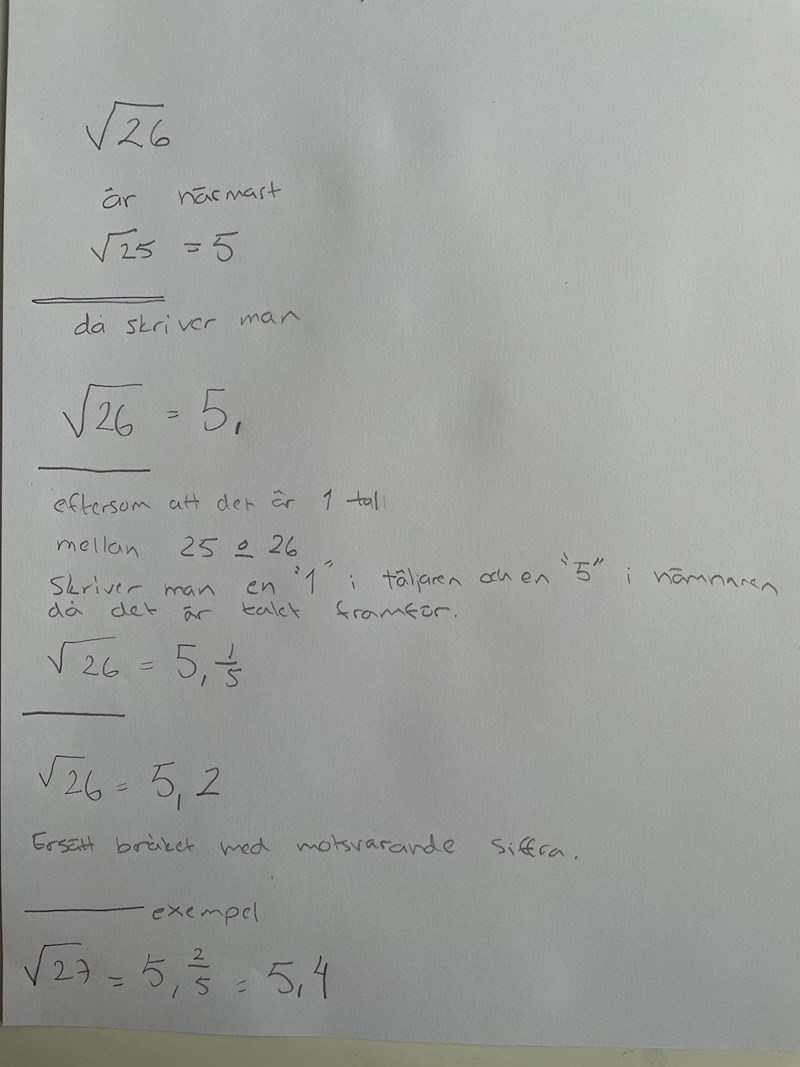 √26
är närmast
√25 = 5
då skriver man
√26 = 5,
eftersom att det är 1 tal
mellan 25 o 26
skriver man en "1" i täljaren och en "5" i nämnaren
då det är talet framför.
√26 = 5, 1/5
√26 = 5, 2
Ersätt bråket med motsvarande siffra.
exempel
√27 = 5, 2/5 = 5,4